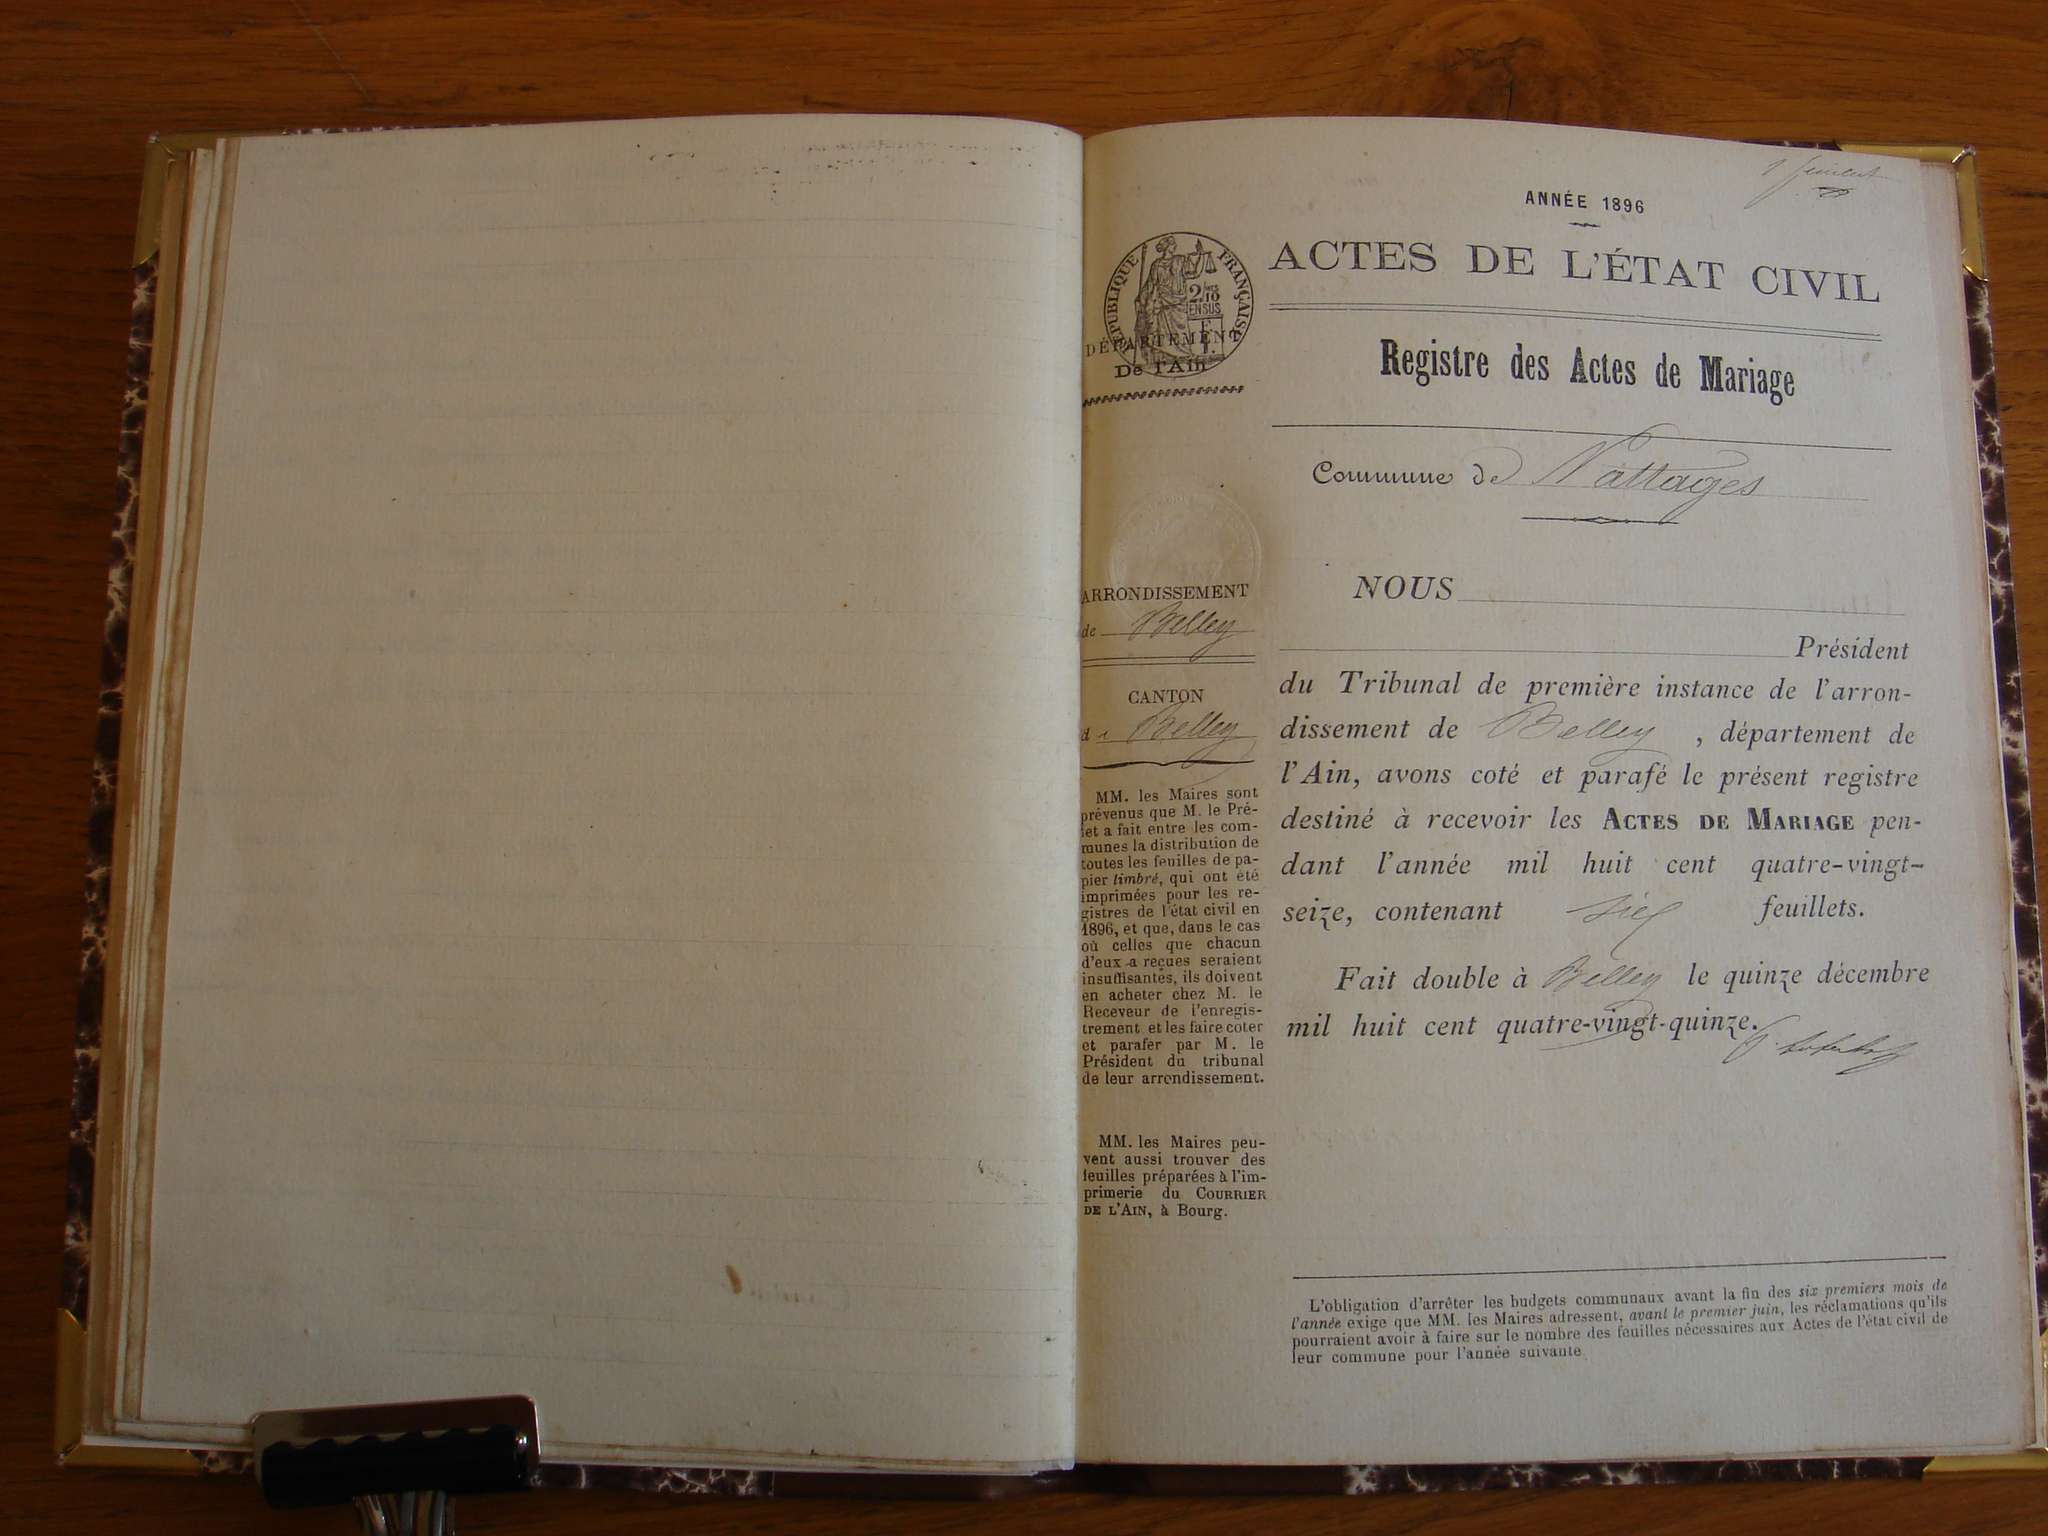 1 feuillet
ANNÉE 1896
ACTES DE L'ÉTAT CIVIL
RÉPUBLIQUE FRANÇAISE
2/10
EN SUS
DÉPARTEMENT
De l'Ain
Registre des Actes de Mariage
Commune de Nattages
ARRONDISSEMENT
de Belley
CANTON
de Belley
MM. les Maires sont
prévenus que M. le Pré-
fet a fait entre les com-
munes la distribution de
toutes les feuilles de pa-
pier timbré, qui ont été
imprimées pour les re-
gistres de l'état civil en
1896, et que, dans le cas
où celles que chacun
d'eux a reçues seraient
insuffisantes, ils doivent
en acheter chez M. le
Receveur de l'enregis-
trement et les faire coter
et parafer par M. le
Président du tribunal
de leur arrondissement.
MM. les Maires peu-
vent aussi trouver des
feuilles préparées à l'im-
primerie du COURRIER
DE L'AIN, à Bourg.
NOUS
Président
du Tribunal de première instance de l'arron-
dissement de Belley, département de
l'Ain, avons coté et parafé le présent registre
destiné à recevoir les ACTES DE MARIAGE pen-
dant l'année mil huit cent quatre-vingt-
seize, contenant six feuillets.
Fait double à Belley le quinze décembre
mil huit cent quatre-vingt-quinze.
L'obligation d'arrêter les budgets communaux avant la fin des six premiers mois de
l'année exige que MM. les Maires adressent, avant le premier juin, les réclamations qu'ils
pourraient avoir à faire sur le nombre des feuilles nécessaires aux Actes de l'état civil de
leur commune pour l'année suivante.